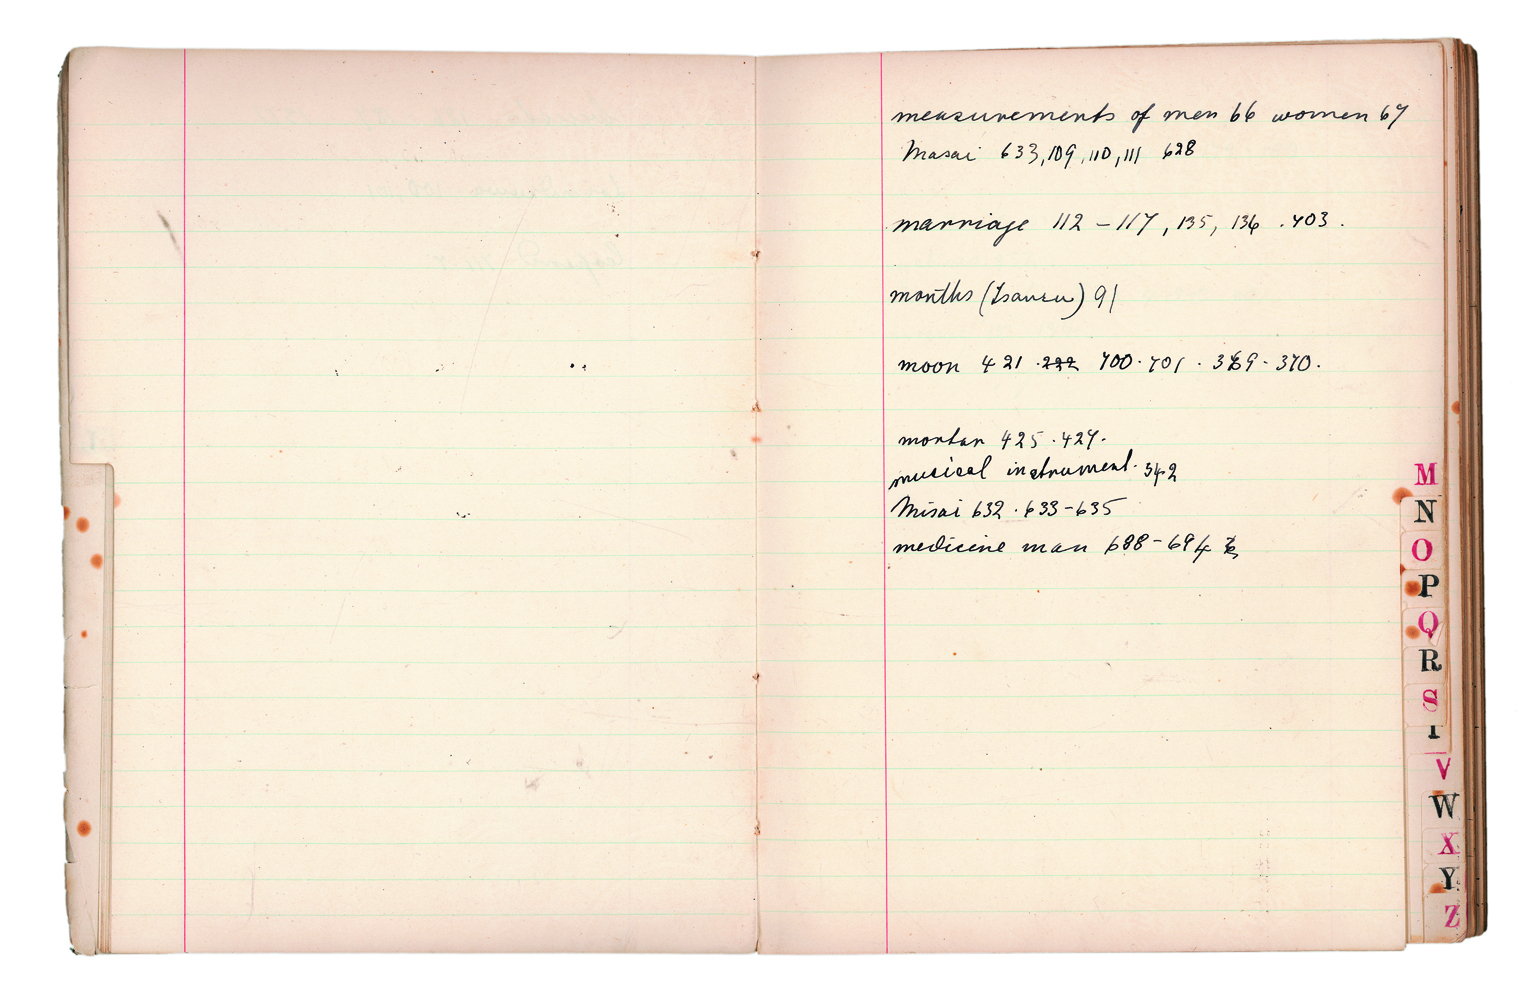 measurements of men 66 women 67
Masai 633, 109, 110, 111 628
marriage 112 - 117, 135, 136 . 703 .
months (Isanzu) 91
moon 421 . 222 700 . 701 . 369 - 370 .
mortar 425 . 427 .
musical instrument . 342
Misai 632 . 633 - 635
medicine man 688 - 694
M
N
O
P
Q
R
S
T
V
W
X
Y
Z